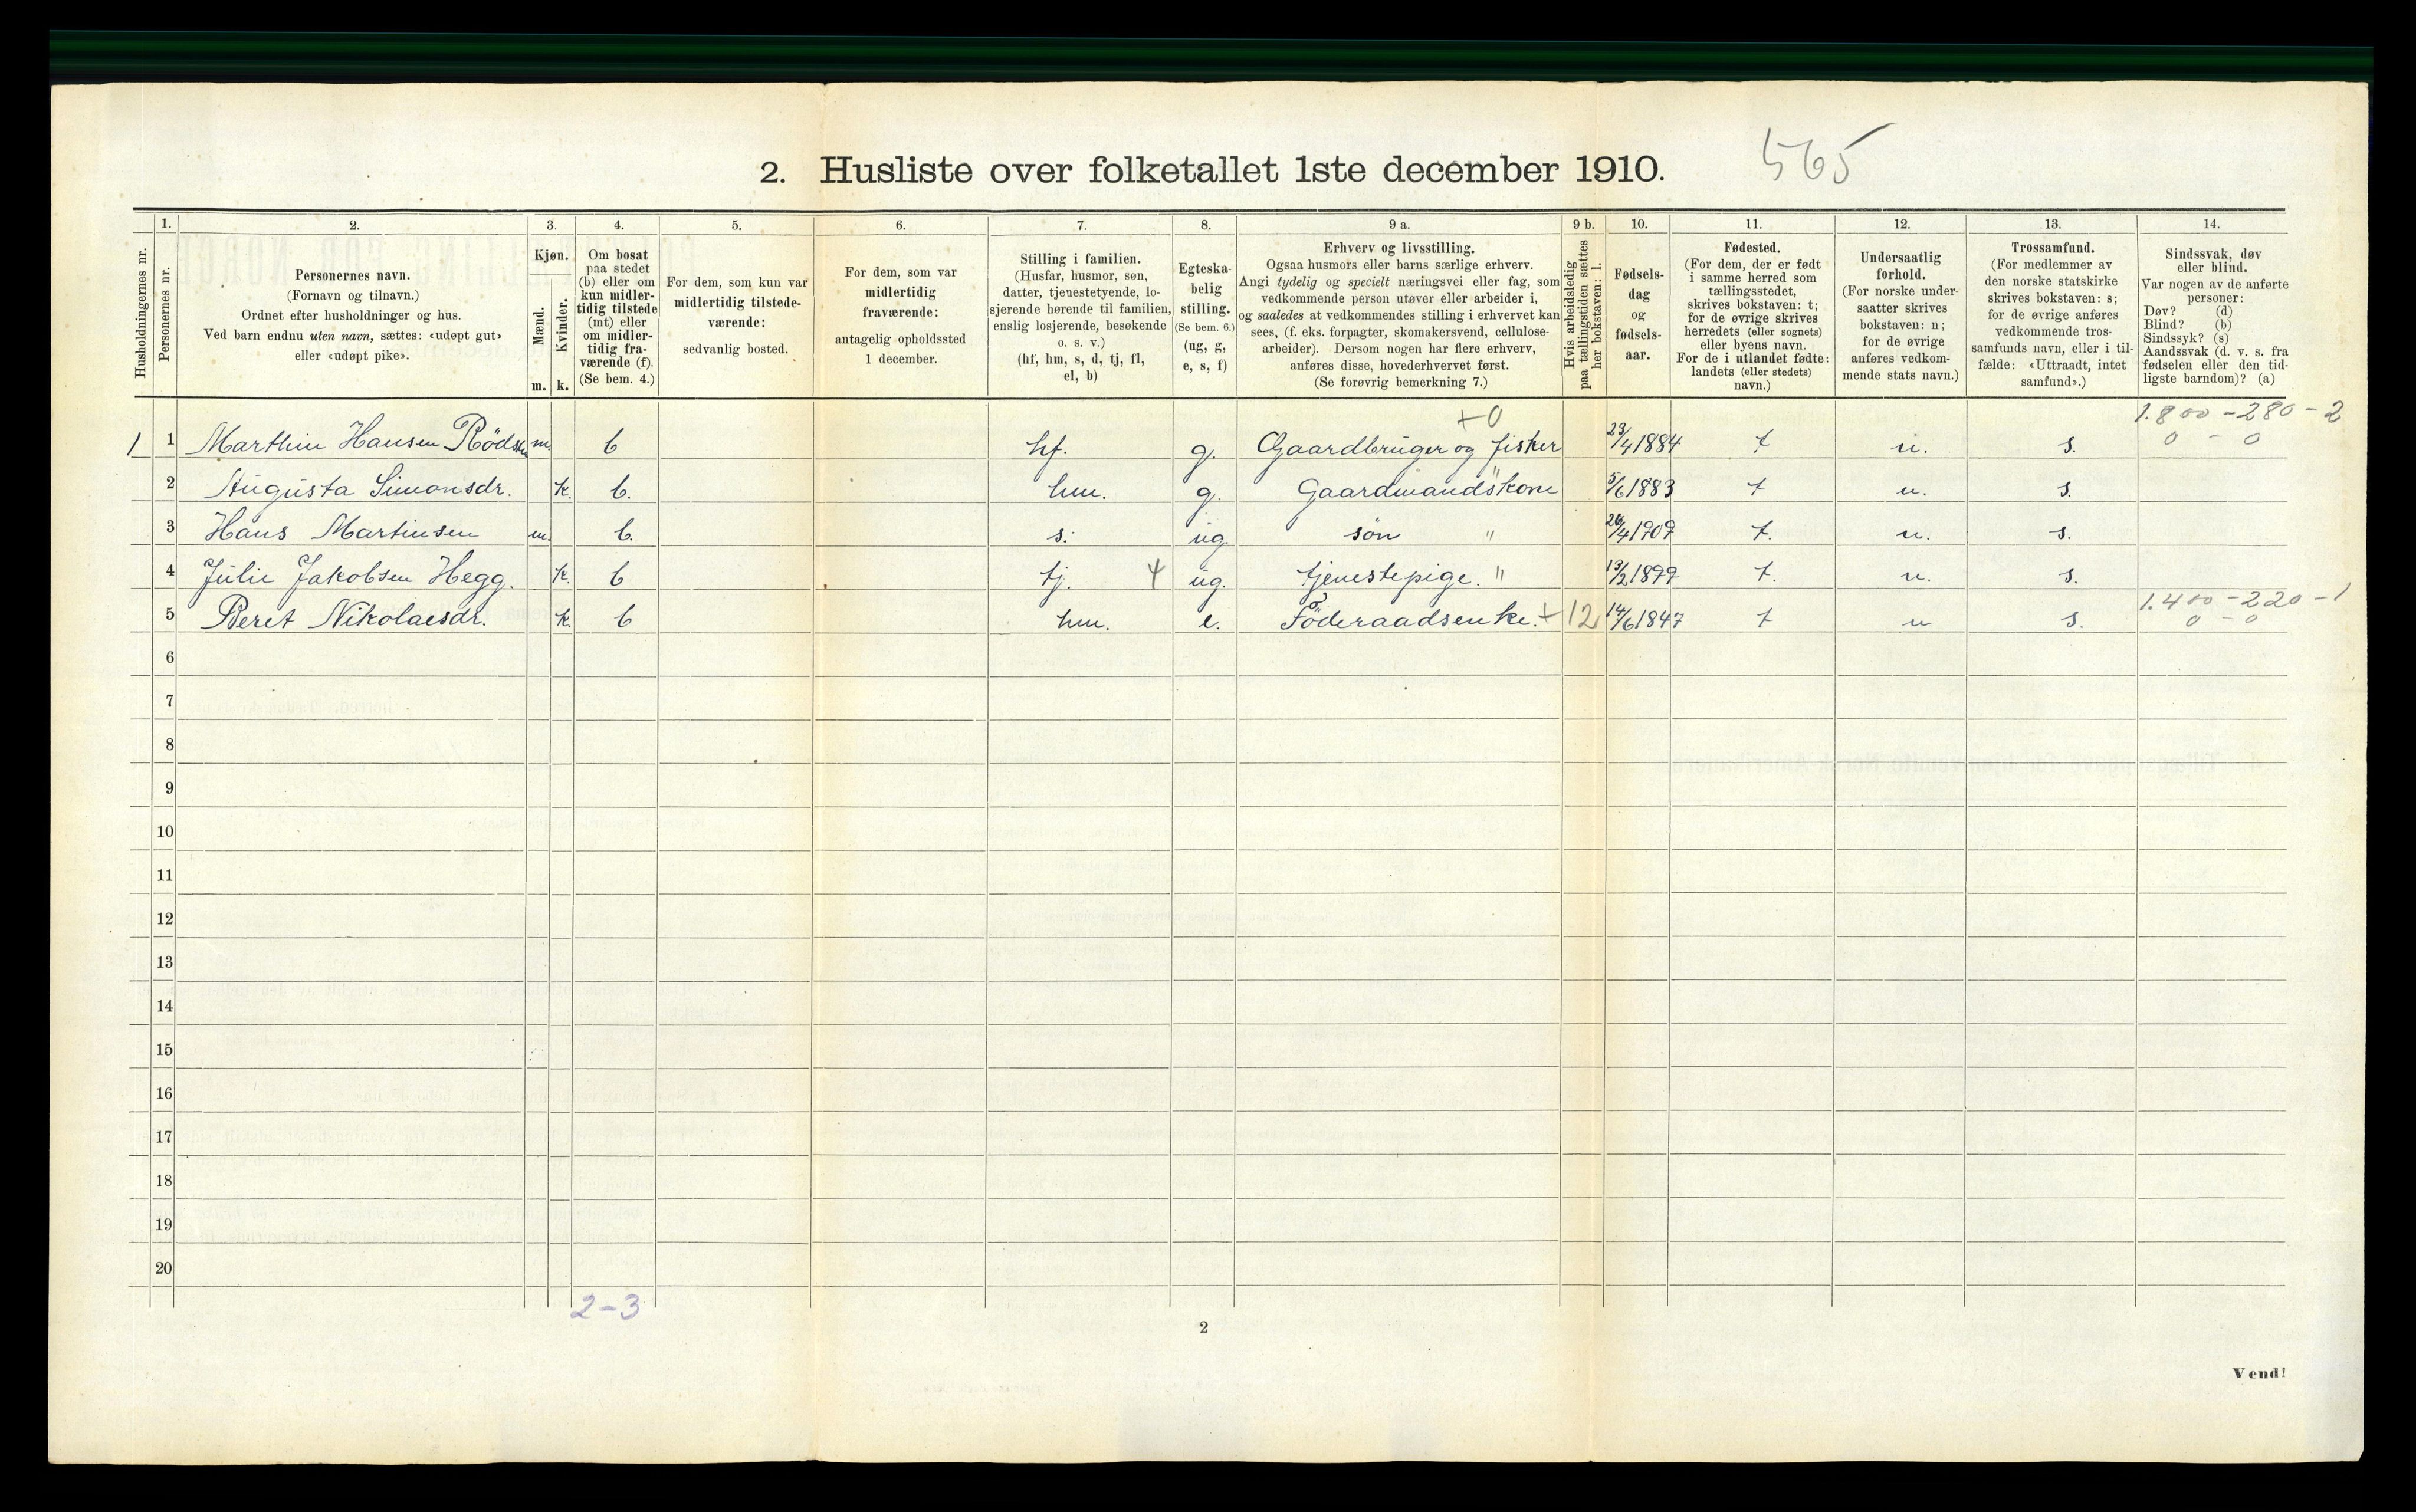 565
2. Husliste over folketallet 1ste december 1910.
Husholdningernes nr.
1.
Personernes nr.
2.
Personernes navn.
(Fornavn og tilnavn.)
Ordnet efter husholdninger og hus.
Ved barn endnu uten navn, sættes: «udøpt gut»
eller «udøpt pike».
3.
Kjøn.
Mænd.
Kvinder.
m. k.
4.
Om bosat
paa stedet
(b) eller om
kun midler-
tidig tilstede
(mt) eller
om midler-
tidig fra-
værende (f).
(Se bem. 4.)
5.
For dem, som kun var
midlertidig tilstede-
værende:
sedvanlig bosted.
6.
For dem, som var
midlertidig
fraværende:
antagelig opholdssted
1 december.
7.
Stilling i familien.
(Husfar, husmor, søn,
datter, tjenestetyende, lo-
sjerende hørende til familien,
enslig losjerende, besøkende
o. s. v.)
(hf, hm, s, d, tj, fl,
el, b)
8.
Egteska-
belig
stilling.
(Se bem. 6.)
(ug, g,
e, s, f)
9 a.
Erhverv og livsstilling.
Ogsaa husmors eller barns særlige erhverv.
Angi tydelig og specielt næringsvei eller fag, som
vedkommende person utøver eller arbeider i,
og saaledes at vedkommendes stilling i erhvervet kan
sees, (f. eks. forpagter, skomakersvend, cellulose-
arbeider). Dersom nogen har flere erhverv,
anføres disse, hovederhvervet først.
(Se forøvrig bemerkning 7.)
9 b.
Hvis arbeidsledig
paa tællingstiden sættes
her bokstaven: l.
10.
Fødsels-
dag
og
fødsels-
aar.
11.
Fødested.
(For dem, der er født
i samme herred som
tællingsstedet,
skrives bokstaven: t;
for de øvrige skrives
herredets (eller sognets)
eller byens navn.
For de i utlandet fødte:
landets (eller stedets)
navn.)
12.
Undersaatlig
forhold.
(For norske under-
saatter skrives
bokstaven: n;
for de øvrige
anføres vedkom-
mende stats navn.)
13.
Trossamfund.
(For medlemmer av
den norske statskirke
skrives bokstaven: s;
for de øvrige anføres
vedkommende tros-
samfunds navn, eller i til-
fælde: «Uttraadt, intet
samfund».)
14.
Sindssvak, døv
eller blind.
Var nogen av de anførte
personer:
Døv? (d)
Blind? (b)
Sindssyk? (s)
Aandssvak (d. v. s. fra
fødselen eller den tid-
ligste barndom)? (a)
+0 1.800 - 280 - 2
1 1 Marthin Hansen Rödsen m. b hf. g. Gaardbruger og fisker 23/4 1884 t n. s. 0 - 0
2 Augusta Simonsdr. k. b. hm. g. Gaardmandskone " 5/6 1883 t n. s.
3 Hans Martinsen m. b. s. ug. sön " 26/4 1909 t. n. s.
4 Julie Jakobsen Hegg. k. b tj. 4 ug. tjenestepige. " 13/2 1899 t. n. s.
1.400 - 220 - 1
5 Beret Nikolaesdr. k. b hm. e. Föderaadsenke. + 12 14/6 1847 t n s. 0 - 0
6
7
8
9
10
11
12
13
14
15
16
17
18
19
20
2-3
2
Vend!